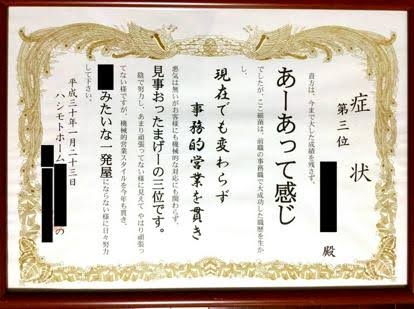 症状
第三位
殿
貴方は、今まで大した成績を残さず、
あーあって感じ
でしたが、ここ細苗は、前職の事務職で大成功した職歴を生かし、
現在でも変わらず
事務的営業を貫き
悪気は無いがお客様にも機械的な対応にも関わらず、
見事おったまげーの三位です。
陰で努力し、あまり頑張ってない様に見えて やはり頑張ってない様ですが、機械的営業スタイルを今年も貫き、
みたいな一発屋にならない様に日々努力して下さい。
平成三十年一月二十三日
ハシモトホーム
の